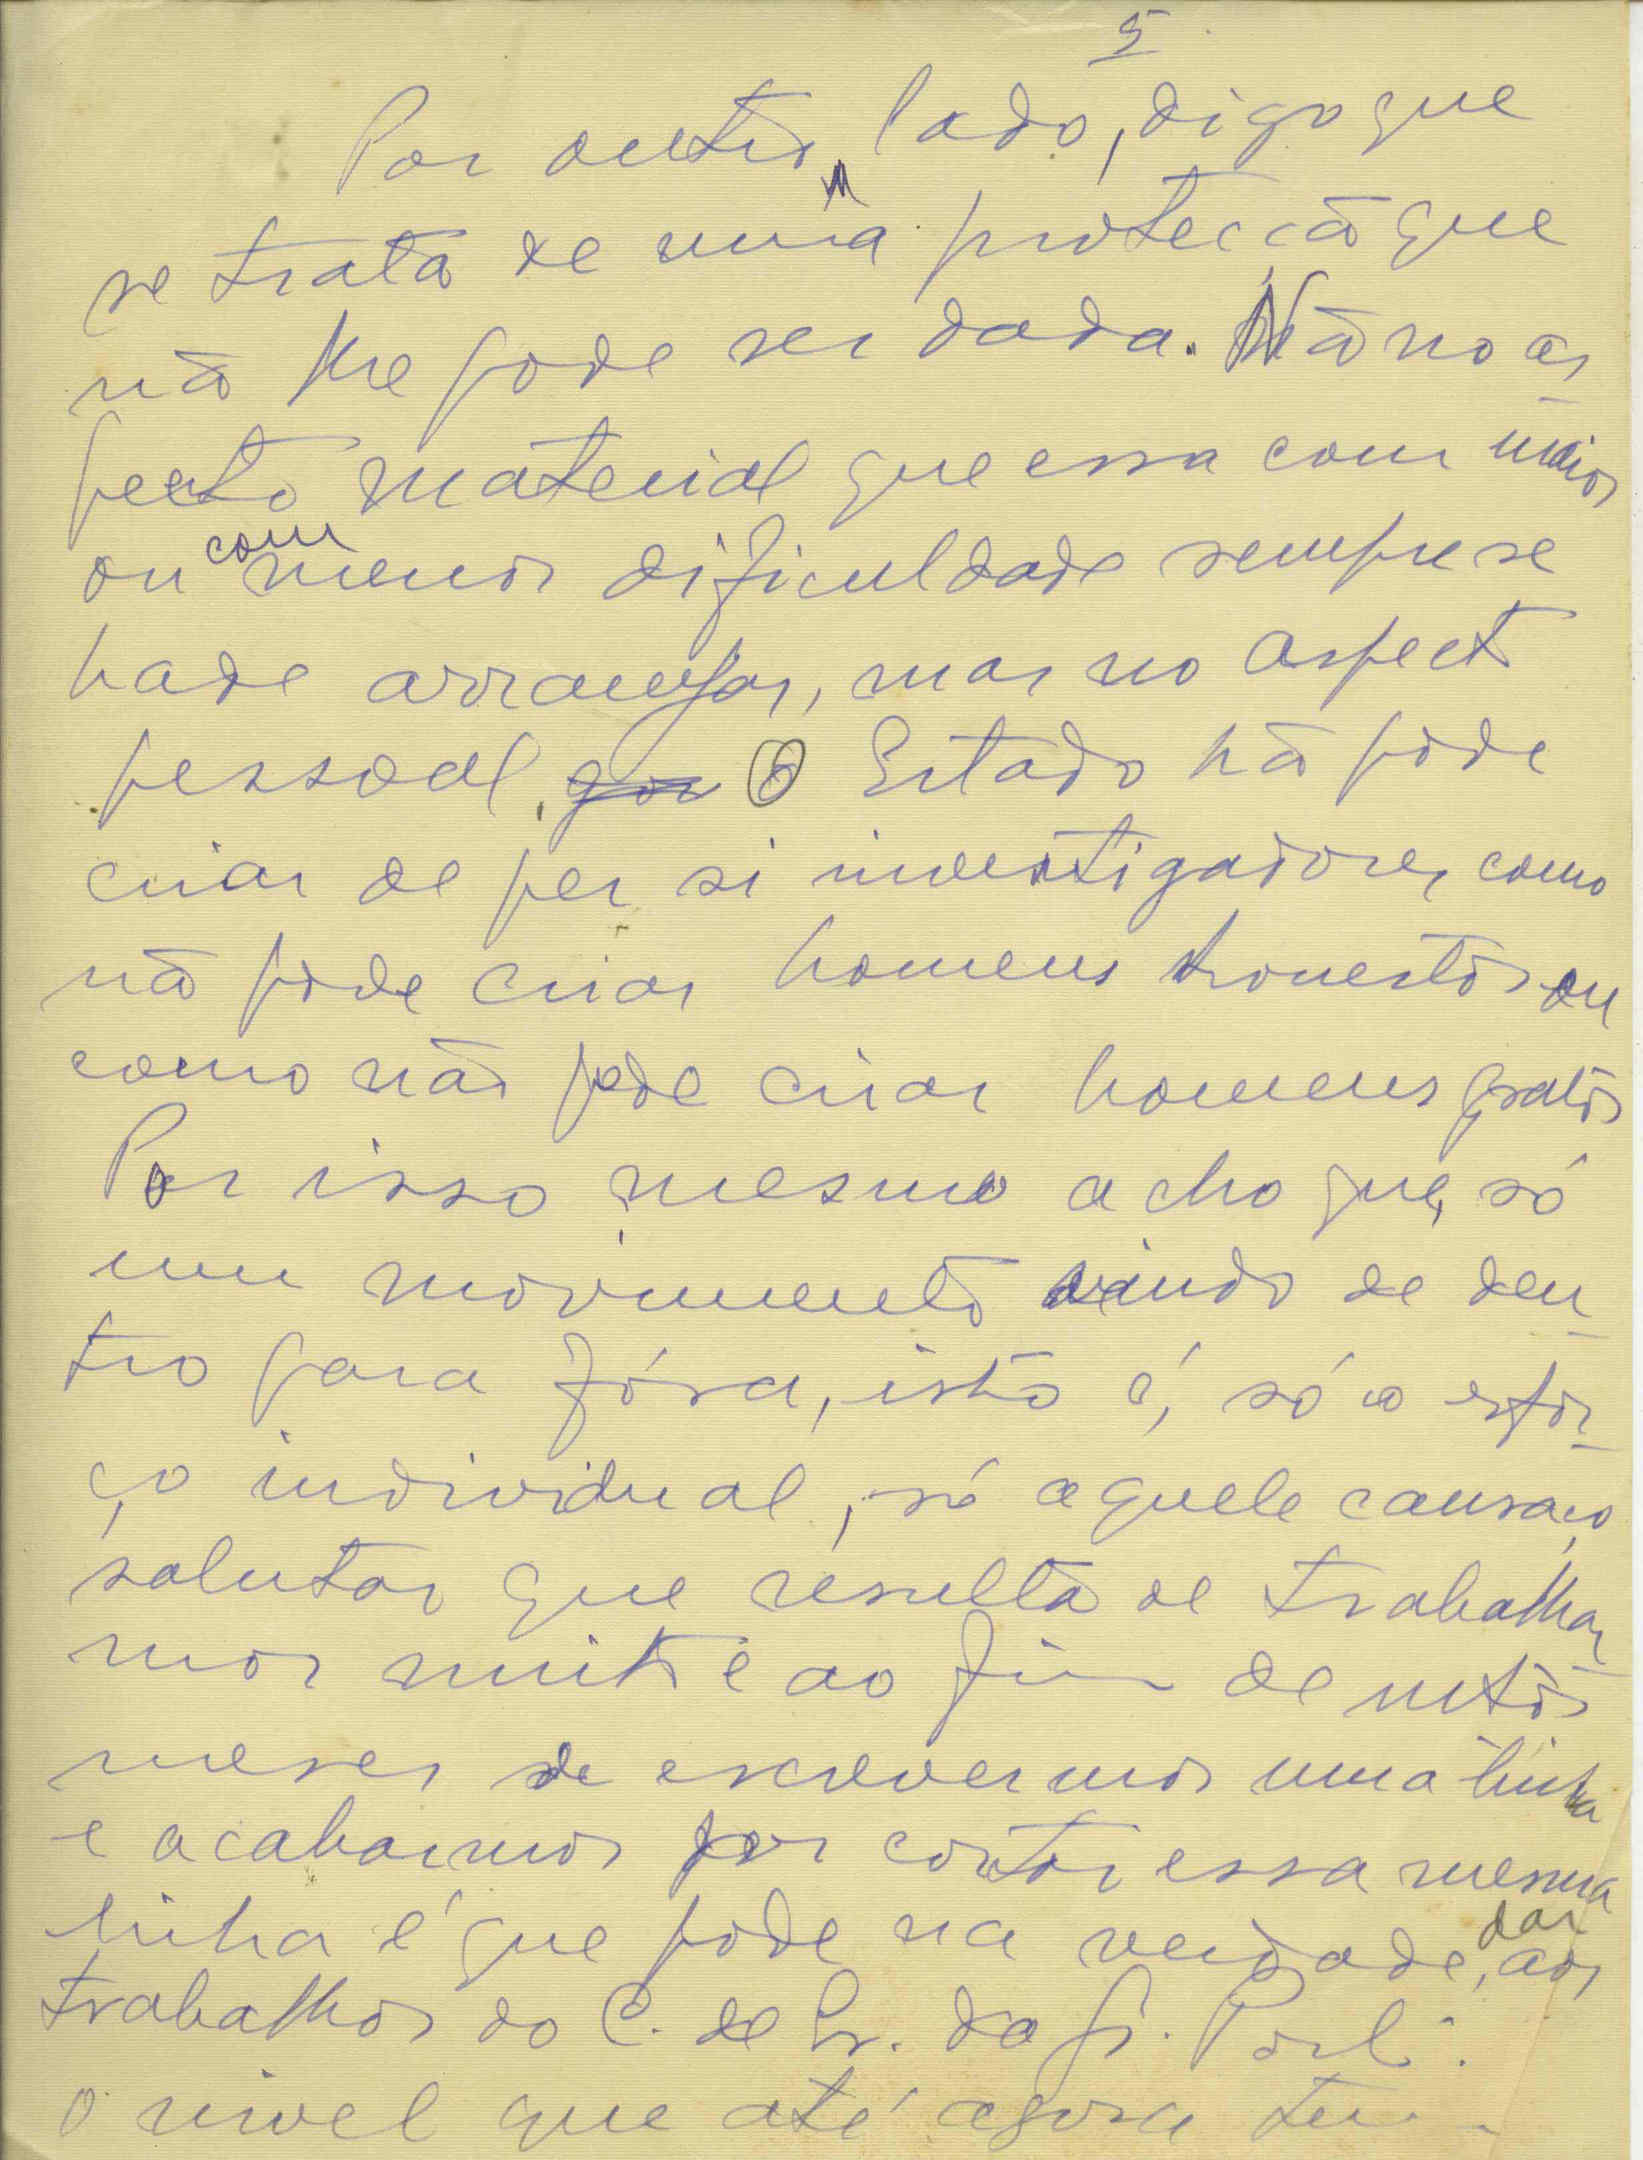 5
Por outro lado, digo que
se trata de uma protecção que
não lhe pode ser dada. Não no as-
pecto material que essa com maior
ou com menor dificuldade sempre se
hade arranjar, mas no aspecto
pessoal. O Estado não pode
criar de per si investigadores como
não pode criar homens honestos ou
como não pode criar homens gratos
Por isso mesmo acho que, só
um movimento vindo de den-
tro para fóra, isto é, só o esfor-
ço individual, só aquele cansaço
salutar que resulta de trabalhar
mos muito e ao fim de mtos
meses de escrevermos uma linha
e acabarmos por cortar essa mesma
linha é que pode na verdade, dar aos
trabalhos do C. de E. da G. Port.
o nivel que até agora tem.